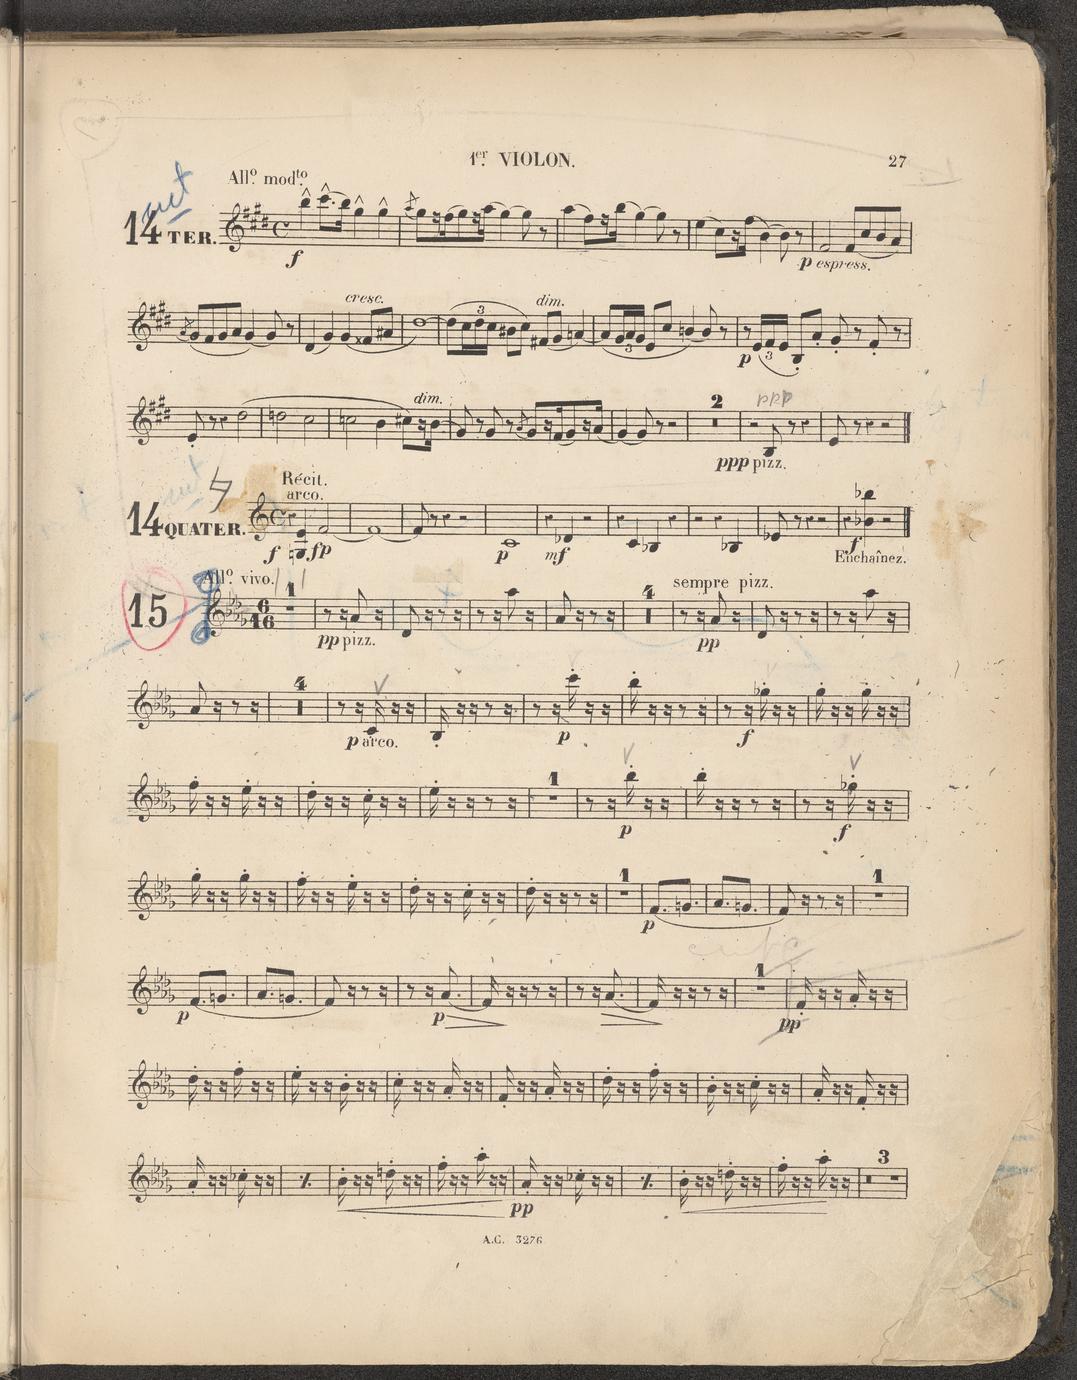 1er VIOLON. 27
Allo. modto.
14 TER.
f
p espress.
cresc. 3 dim.
3 p 3
dim. 2 ppp
ppp pizz.
Récit.
arco.
14 QUATER.
f fp p mf f Enchaînez.
Allo. vivo. 1 4 sempre pizz.
15 6 16
pp pizz. pp
4
p arco. p f
1
p f
1 1
p
1
p p pp
3
pp
A.C. 3276